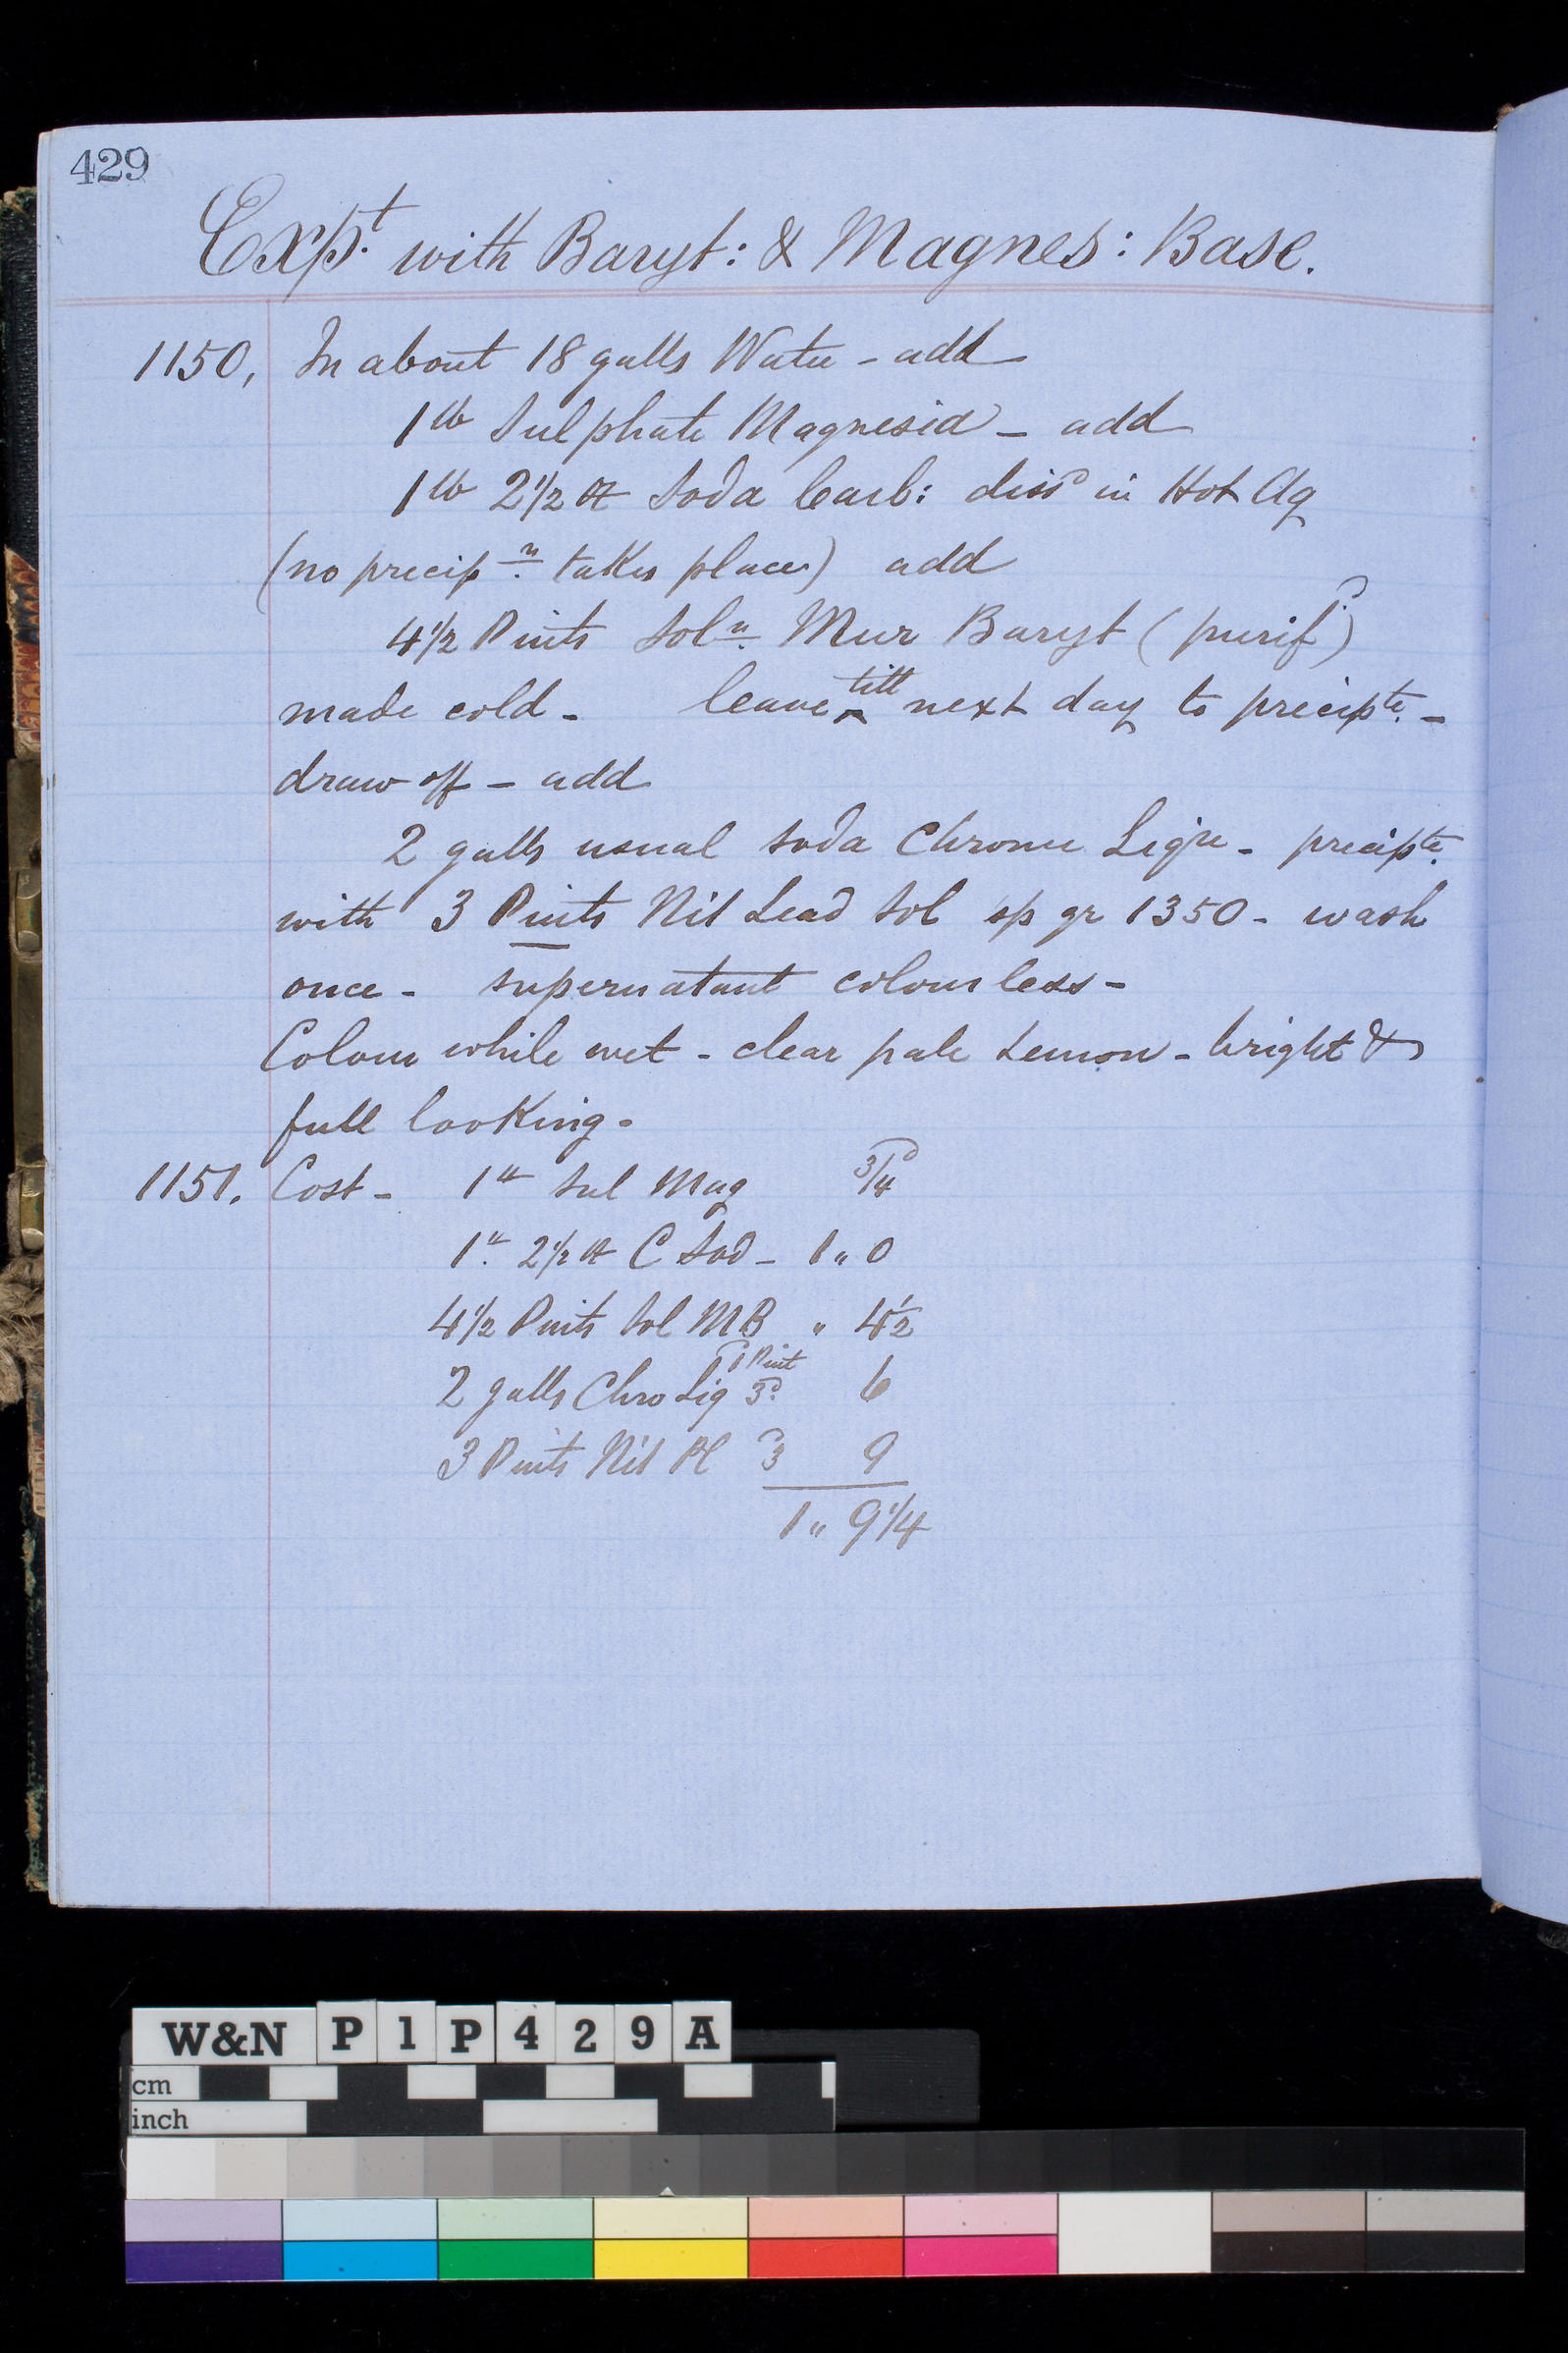 429
Expt. with Baryt: & Magnes: Base.
1150, In about 18 galls Water - add
1 lb Sulphate Magnesia - add
1 lb 2 1/2 oz Soda Carb: dissd in Hot Aq
(no precipn. takes place) add
4 1/2 Pints Soln. Mur Baryt (purifd)
made cold - leave till next day to precipte. -
draw off - add
2 galls usual Soda Chrome Liqre - precipte.
with 3 Pints Nit Lead Sol sp gr 1350 - wash
once - supernatant colourless -
Colour while wet - clear pale Lemon - bright &
full looking -
1151. Cost - 1 lb Sul Mag 3/4d
1 lb. 2 1/2 oz C Sod - 1 " 0
4 1/2 Pints Sol MB " 4 1/2
2 galls Chro Liq 1 Pint 3d. 6
3 Pints Nit Pl 3d 9
1 " 9 1/4
W&N P1P429A
cm
inch